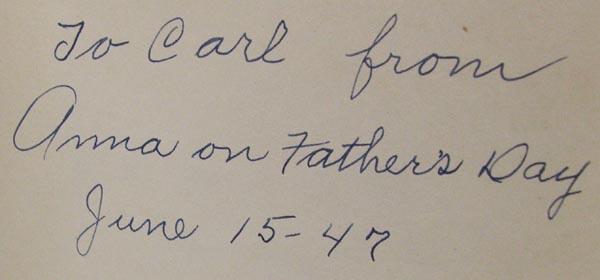 To Carl from
Anna on Father's Day
June 15-47